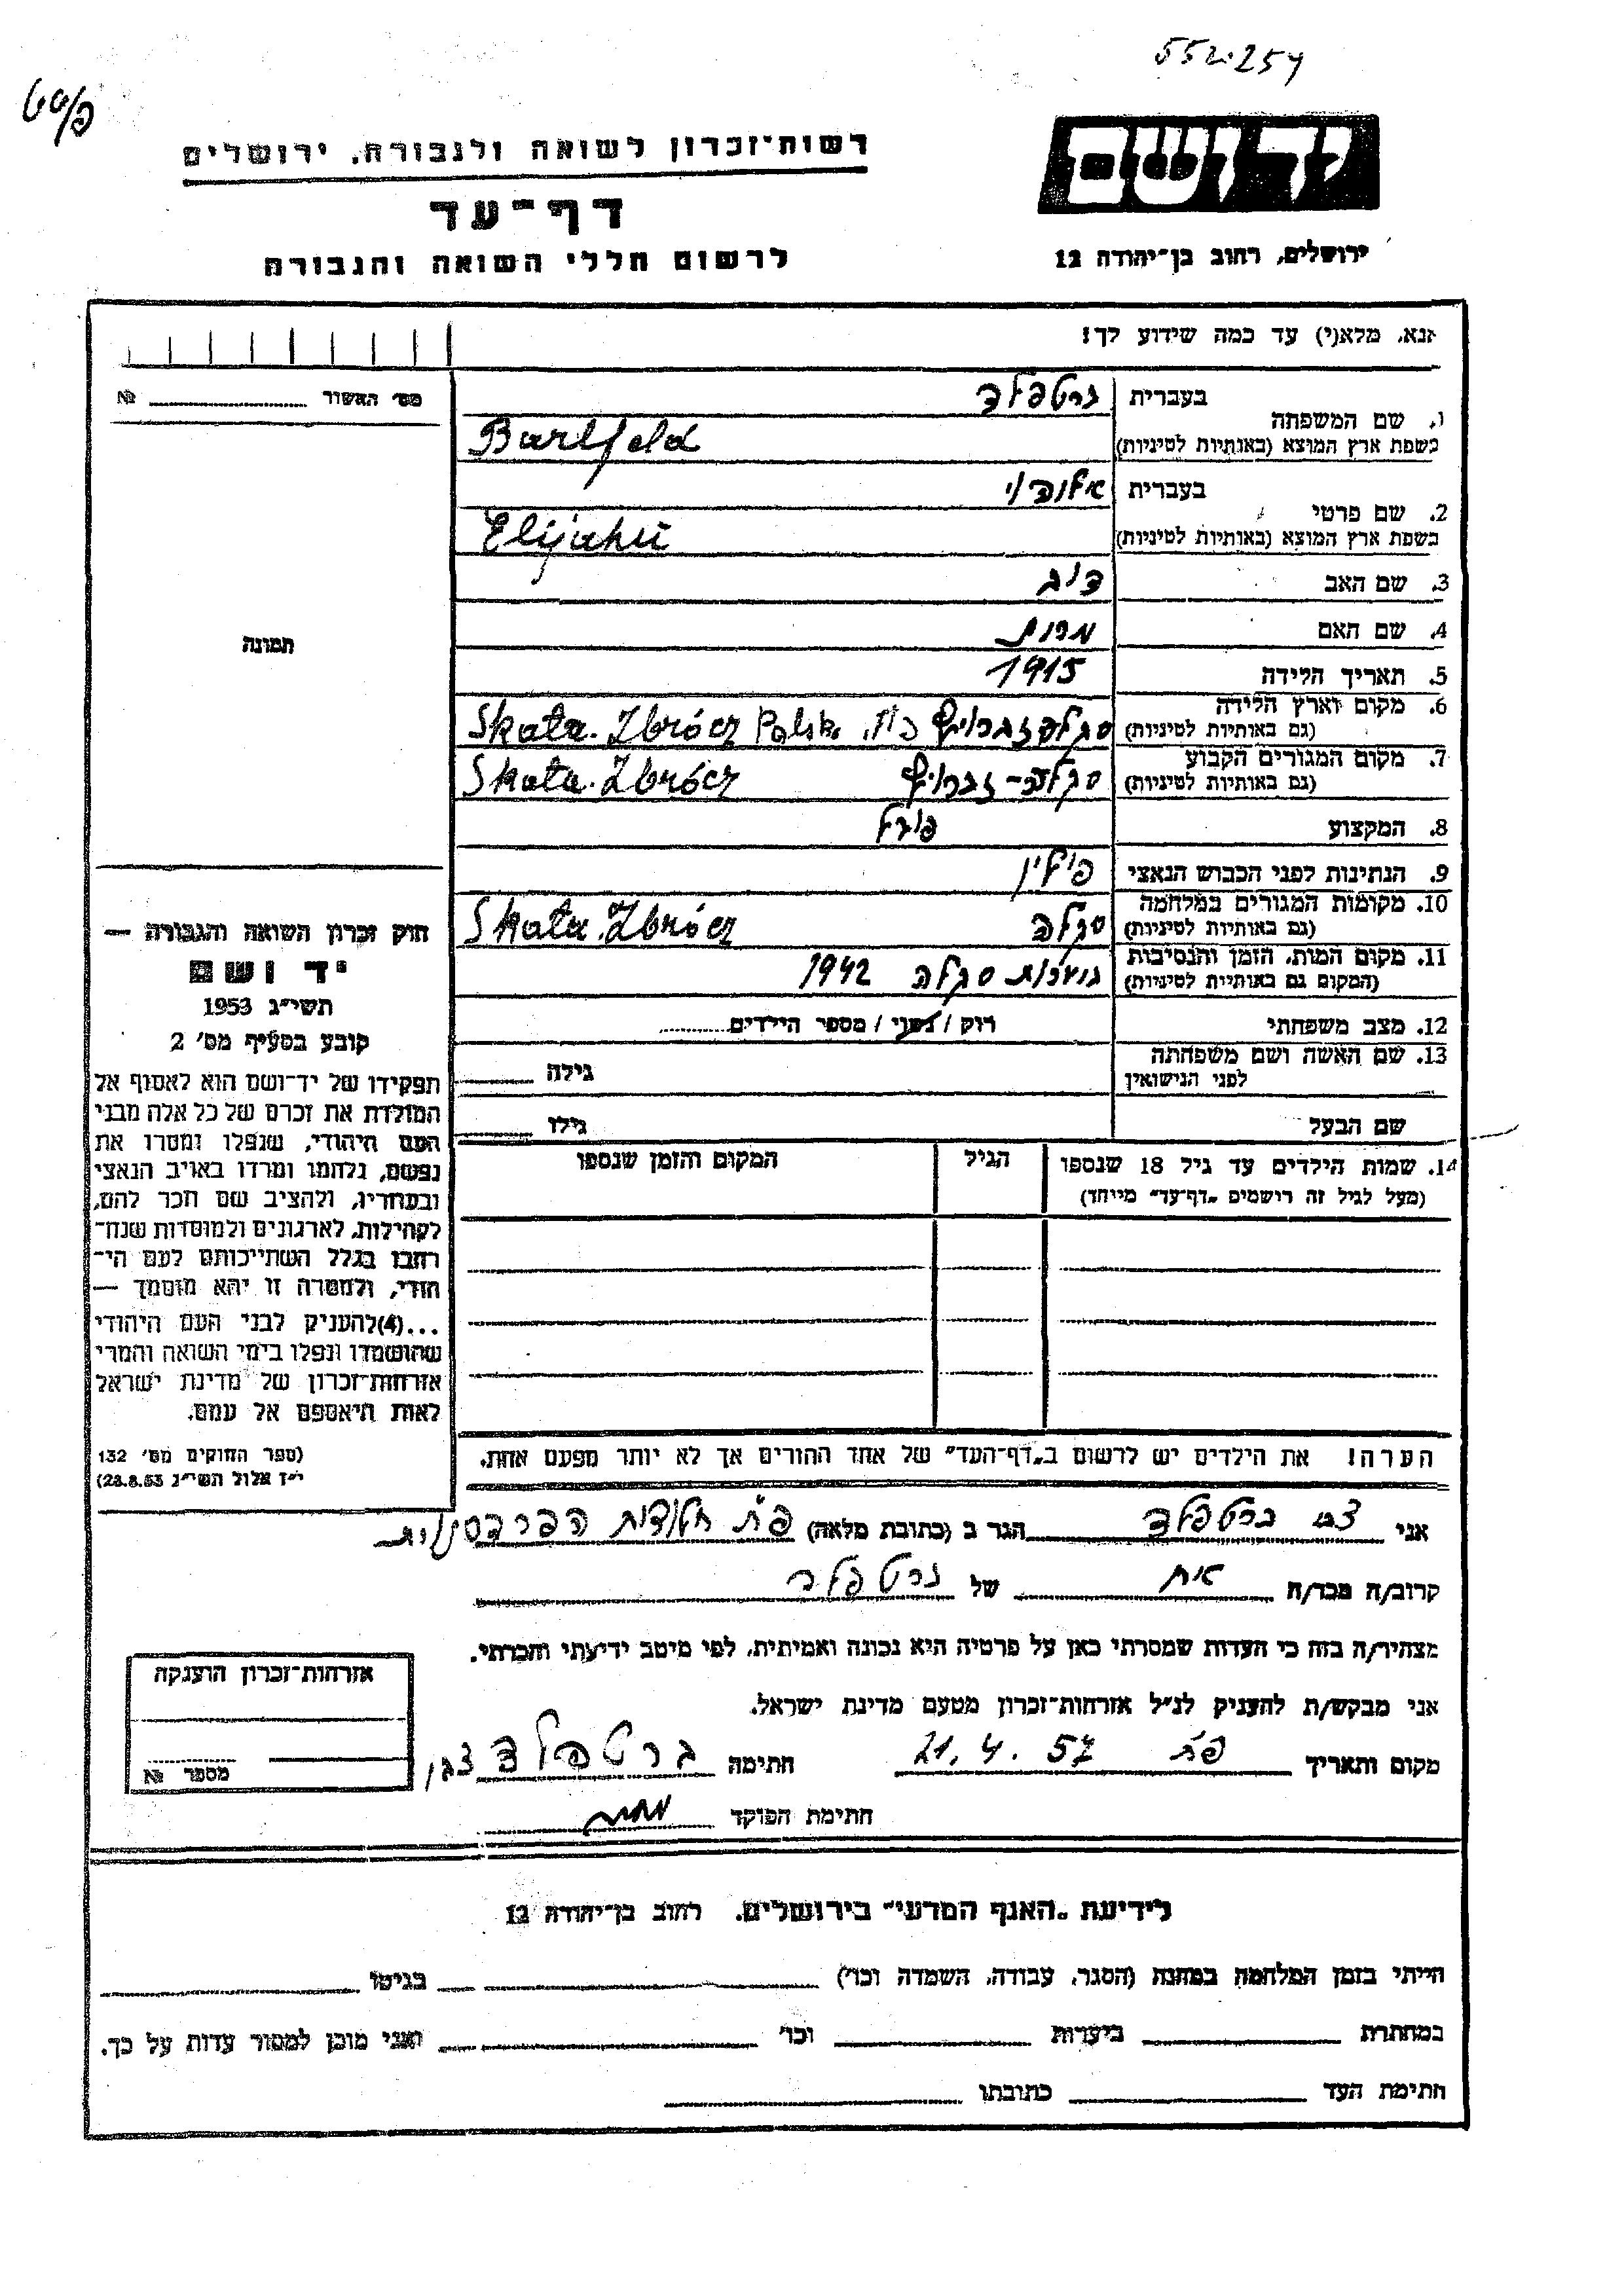 552.254
רשות־זכרון לשואה ולגבורה, ירושלים
דף־עד
לרשום חללי השואה והגבורה
יד ושם
ירושלים, רחוב בן־יהודה 12
אנא, מלא(י) עד כמה שידוע לך!
מס׳ האשור № 
1. שם המשפחה
בעברית ברטפלד
בשפת ארץ המוצא (באותיות לטיניות) Bartfeld
2. שם פרטי
בעברית אליהו
בשפת ארץ המוצא (באותיות לטיניות) Elijahu
3. שם האב
4. שם האם
5. תאריך הלידה 1915
6. מקום וארץ הלידה
(גם באותיות לטיניות) Skała. Zbrócz Polsk.
7. מקום המגורים הקבוע
(גם באותיות לטיניות) Skała. Zbrócz
8. המקצוע פועל
9. הנתינות לפני הכבוש הנאצי פולין
10. מקומות המגורים במלחמה
(גם באותיות לטיניות) סקלה Skała. Zbrócz
11. מקום המות, הזמן והנסיבות
(המקום גם באותיות לטיניות) סקלה 1942
12. מצב משפחתי רוק / נשוי / מספר הילדים
13. שם האשה ושם משפחתה
לפני הנישואין גילה
שם הבעל גילו
14. שמות הילדים עד גיל 18 שנספו הגיל המקום והזמן שנספו
(מעל לגיל זה רושמים „דף־עד״ מייחד)
הערה! את הילדים יש לרשום ב„דף־העד״ של אחד ההורים אך לא יותר מפעם אחת.
תמונה
חוק זכרון השואה והגבורה —
יד ושם
תשי״ג 1953
קובע בסעיף מס׳ 2
תפקידו של יד־ושם הוא לאסוף אל
המולדת את זכרם של כל אלה מבני
העם היהודי, שנפלו ומסרו את
נפשם, נלחמו ומרדו באויב הנאצי
ובעוזריו, ולהציב שם וזכר להם,
לקהילות, לארגונים ולמוסדות שנח־
רבו בגלל השתייכותם לעם הי־
הודי, ולמטרה זו יהא מוסמך —
...(4)להעניק לבני העם היהודי
שהושמדו ונפלו בימי השואה והמרי
אזרחות־זכרון של מדינת ישראל
לאות היאספם אל עמם.
(ספר החוקים מס׳ 132
י״ז אלול תשי״ג 28.8.53)
אני צבי ברטפלד הגר ב (כתובת מלאה) פ״ת
קרוב/ה מכר/ה אח של ברטפלד
מצהיר/ה בזה כי העדות שמסרתי כאן על פרטיה היא נכונה ואמיתית, לפי מיטב ידיעתי והכרתי.
אני מבקש/ת להעניק לנ״ל אזרחות־זכרון מטעם מדינת ישראל.
מקום ותאריך פ״ת 21.4.57 חתימה ברטפלד צבי
חתימת הפוקד
אזרחות־זכרון הוענקה
מספר №
לידיעת „האגף המדעי״ בירושלים, רחוב בן־יהודה 12
הייתי בזמן המלחמה במחנה (הסגר, עבודה, השמדה וכו׳) בגיטו
במחתרת ביערות וכו׳ ואני מוכן למסור עדות על כך.
חתימת העד כתובתו